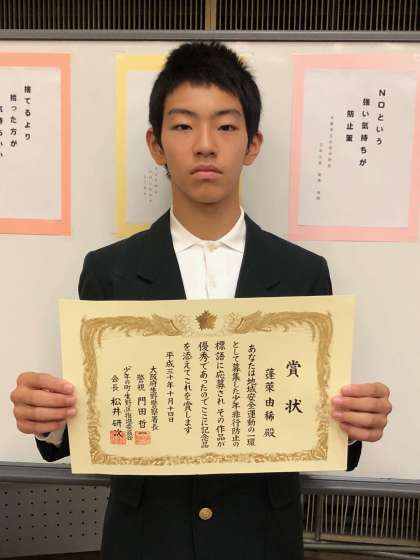 NOという
強い気持ちが
防止策
捨てるより
拾った方が
気持ちいい
賞状
蓬莱由稀 殿
あなたは地域安全運動の一環
として募集した少年非行防止の
標語に応募され その作品が
優秀であったのでここに記念品
を添えてこれを賞します
平成三十年十月十日
大阪府生野警察署長
警視 門田 哲
会長 松井 研次